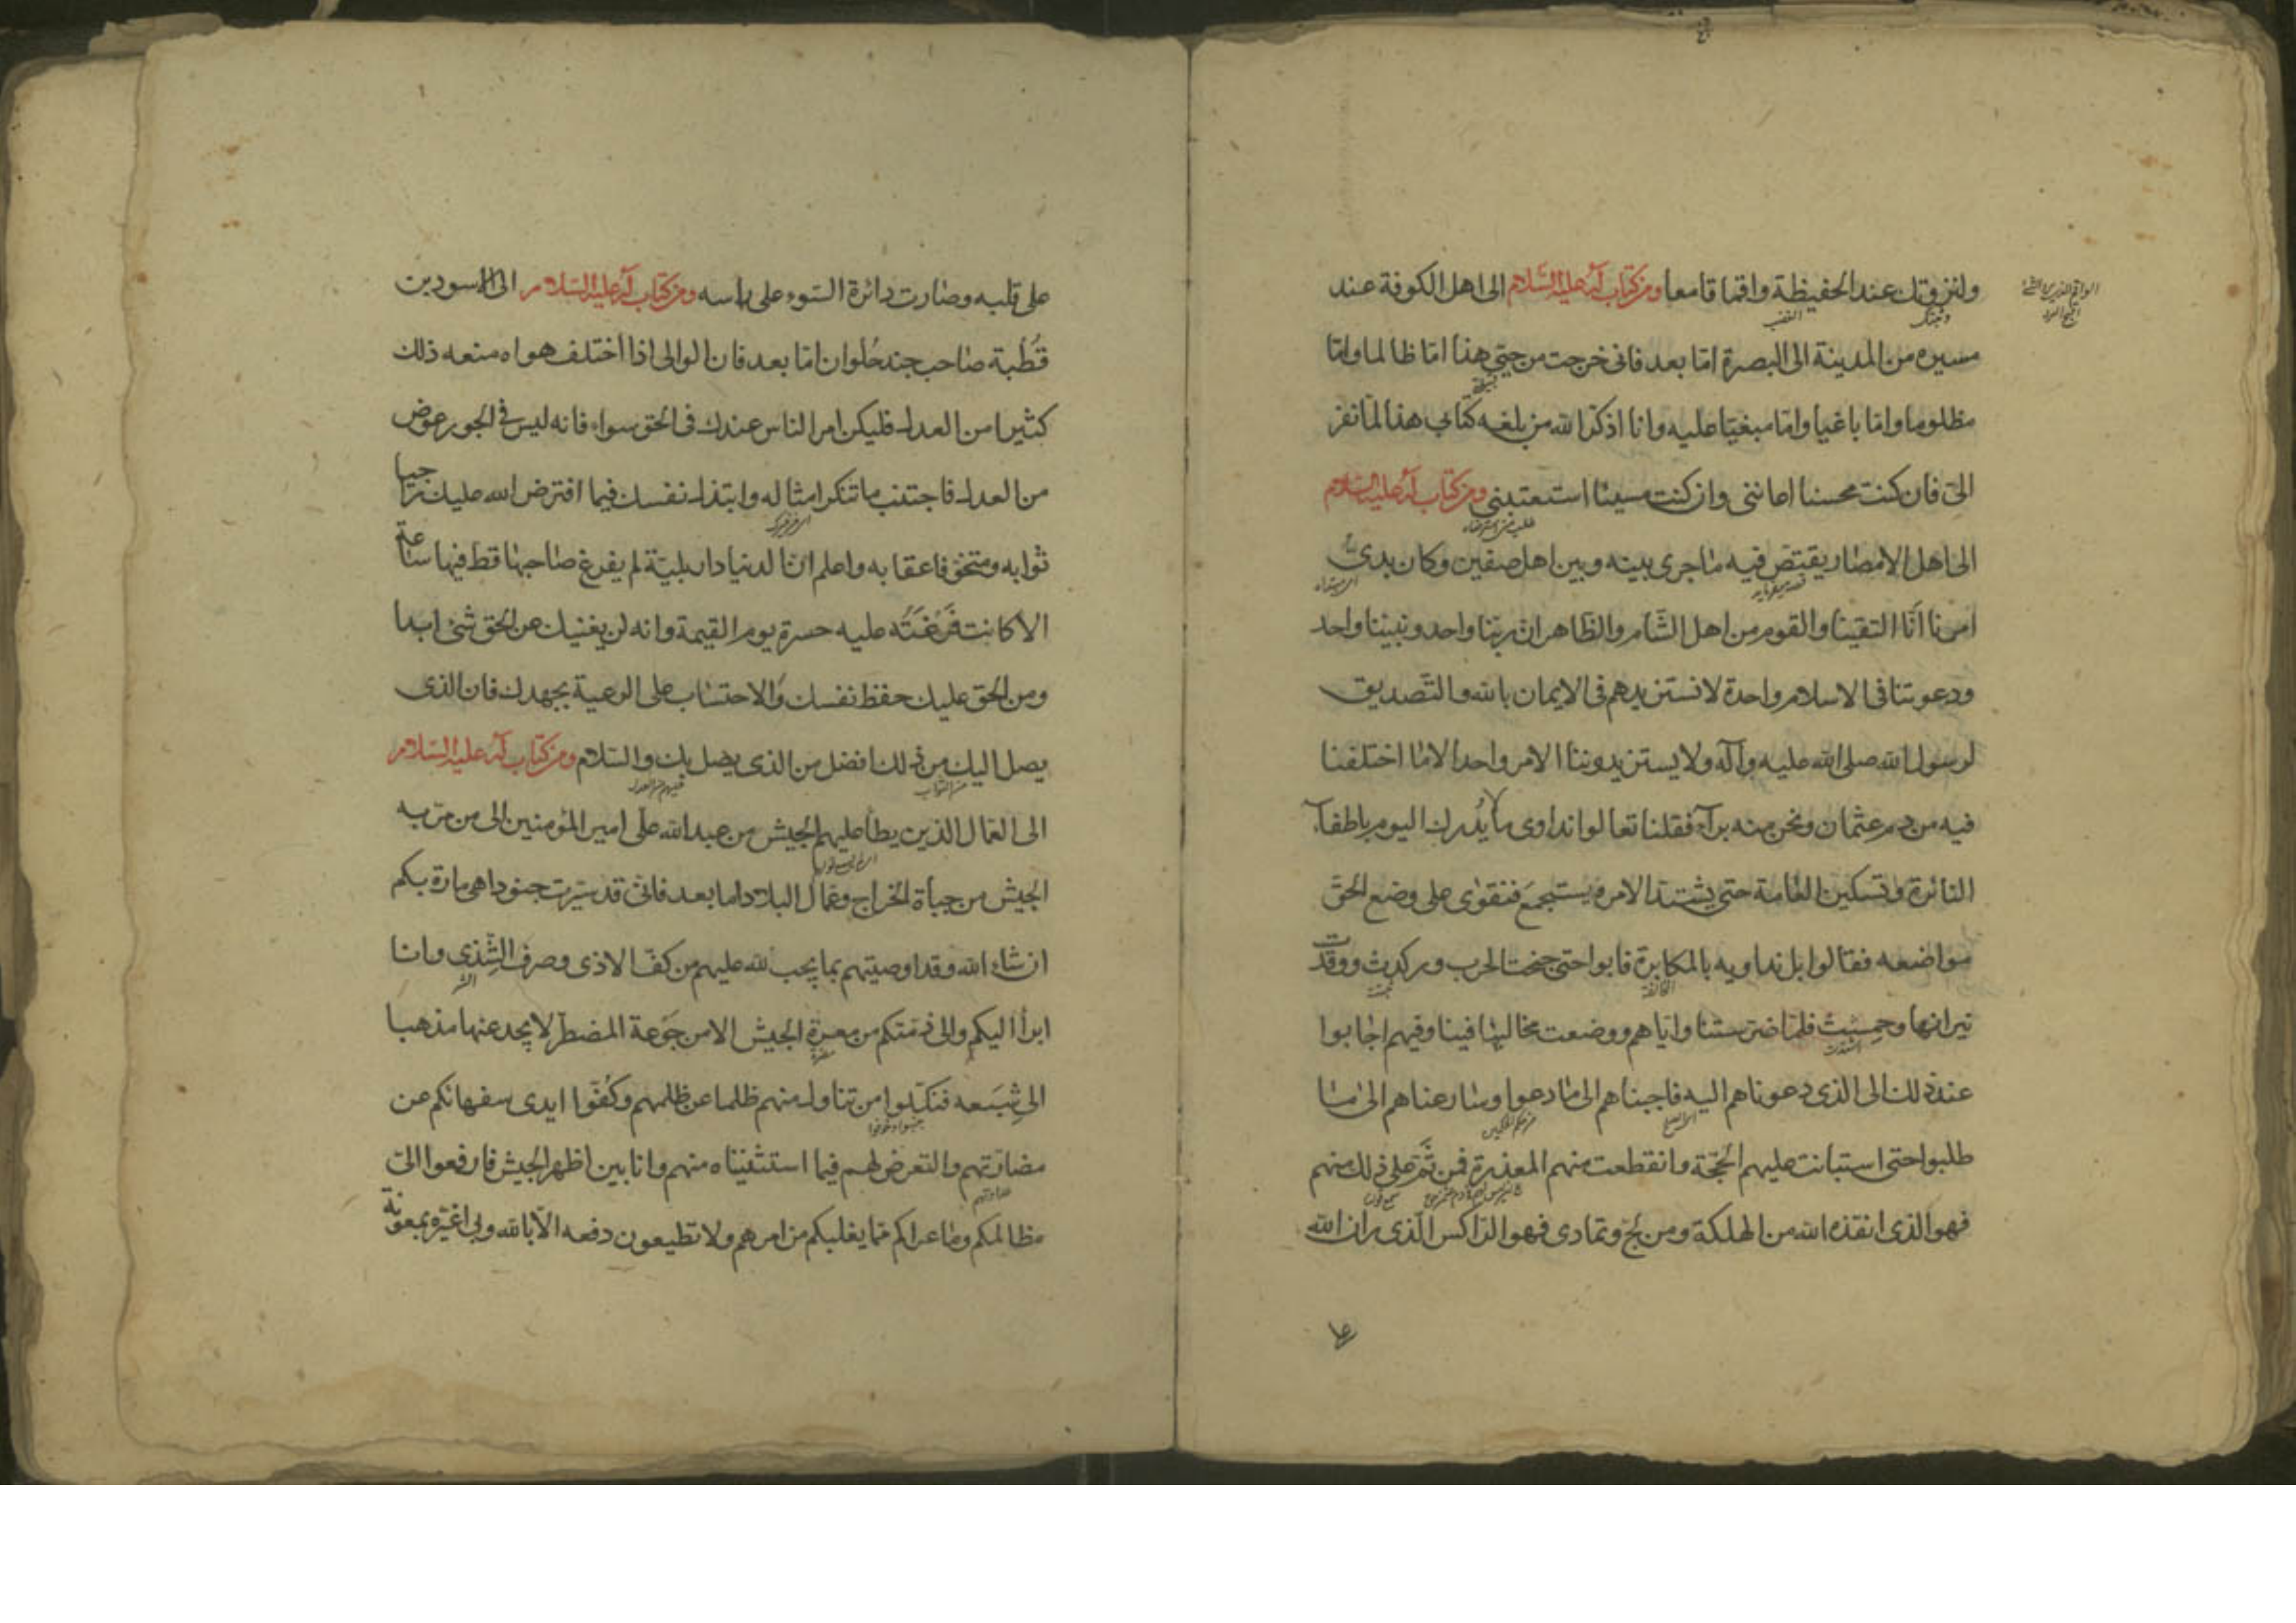 ولنزوتك عند الحفيظة واقما قامعا ومن كتاب له عليه السلام الى اهل الكوفة عند
مسيره من المدينة الى البصرة اما بعد فانى خرجت من حيى هذا اما ظالما واما
مظلوما واما باغيا واما مبغيا عليه وانا اذكر الله من بلغه كتابى هذا لما نفر
الى فان كنت محسنا اعاننى وان كنت مسيئا استعتبنى ومن كتاب له عليه السلام
الى اهل الامصار يقتص فيه ما جرى بينه وبين اهل صفين وكان بدئ
امرنا انا التقينا والقوم من اهل الشام والظاهر ان ربنا واحد ونبينا واحد
ودعوتنا فى الاسلام واحدة لا نستزيدهم فى الايمان بالله والتصديق
لرسول الله صلى الله عليه وآله ولا يستزيدوننا الامر واحد الا ما اختلفنا
فيه من دم عثمان ونحن منه برآء فقلنا تعالوا نداوى ما لا يدرك اليوم باطفاء
النائرة وتسكين العامة حتى يشتد الامر ويستجمع فنقوى على وضع الحق
مواضعه فقالوا بل نداويه بالمكابرة فابوا حتى جنحت الحرب وركدت ووقدت
نيرانها وحمست فلما ضرستنا واياهم ووضعت مخالبها فينا وفيهم اجابوا
عند ذلك الى الذى دعوناهم اليه فاجبناهم الى ما دعوا وسارعناهم الى ما
طلبوا حتى استبانت عليهم الحجة وانقطعت منهم المعذرة فمن تم على ذلك منهم
فهو الذى انقذه الله من الهلكة ومن لج وتمادى فهو الراكس الذى ران الله
على قلبه وصارت دائرة السوء على راسه ومن كتاب له عليه السلام الى الاسود بن
قطبة صاحب جند حلوان اما بعد فان الوالى اذا اختلف هواه منعه ذلك
كثيرا من العدل فليكن امر الناس عندك فى الحق سواء فانه ليس فى الجور عوض
من العدل فاجتنب ما تنكر امثاله وابتذل نفسك فيما افترض الله عليك راجيا
ثوابه ومتخوفا عقابه واعلم ان الدنيا دار بلية لم يفرغ صاحبها قط فيها ساعة
الا كانت فرغته عليه حسرة يوم القيمة وانه لن يغنيك عن الحق شئ ابدا
ومن الحق عليك حفظ نفسك والاحتساب على الرعية بجهدك فان الذى
يصل اليك من ذلك افضل من الذى يصل بك والسلام ومن كتاب له عليه السلام
الى العمال الذين يطأ عليهم الجيش من عبد الله على امير المؤمنين الى من مر به
الجيش من جباة الخراج وعمال البلاد اما بعد فانى قد سيرت جنودا هى مارة بكم
ان شاء الله وقد اوصيتهم بما يجب لله عليهم من كف الاذى وصرف الشذى وانا
ابرأ اليكم والى ذمتكم من معرة الجيش الا من جوعة المضطر لا يجد عنها مذهبا
الى شبعه فنكلوا من تناول منهم ظلما عن ظلمهم وكفوا ايدى سفهائكم عن
مضارتهم والتعرض لهم فيما استثنيناه منهم وانا بين اظهر الجيش فارفعوا الى
مظالمكم وما عراكم مما يغلبكم من امرهم ولا تطيعون دفعه الا بالله وبى اغيره بمعونة